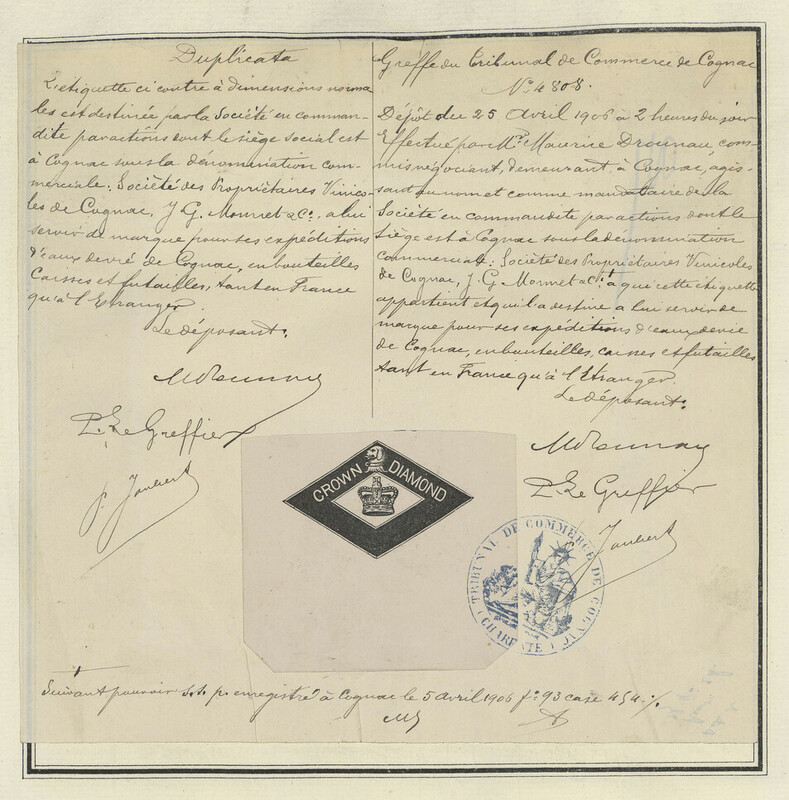 Duplicata
L'étiquette ci contre à dimensions norma
les est destinée par la Société en comman-
dite par actions dont le siège social est
à Cognac sous la dénomination com-
merciale: Société des Propriétaires Vinico-
les de Cognac, J. G. Monnet & Cº, à lui
servir de marque pour ses expéditions
d'eaux de vie de Cognac, en bouteilles
caisses et futailles, tant en France
qu'à l'Etranger.
Le déposant.
P. Le Greffier
p. Joubert
Greffe du Tribunal de Commerce de Cognac
Nº 4808.
Dépôt du 25 Avril 1906 à 2 heures du soir
Effectué par Mr. Maurice Drounau, com-
mis négociant, demeurant à Cognac, agis-
sant au nom et comme mandataire de la
Société en commandite par actions dont le
siège est à Cognac sous la dénomination
commerciale: Société des Propriétaires Vinicoles
de Cognac, J. G. Monnet & Cº, à qui cette étiquette
appartient et qui l'a destine a lui servir de
marque pour ses expéditions d'eaux de vie
de Cognac, en bouteilles, caisses et futailles
tant en France qu'à l'Etranger.
Le déposant.
P. Le Greffier
Joubert
CROWN DIAMOND
TRIBUNAL DE COMMERCE DE COGNAC
(CHARENTE)
Suivant pouvoir s. s. p. enregistré à Cognac le 5 avril 1906 fº 93 case 454 ./.